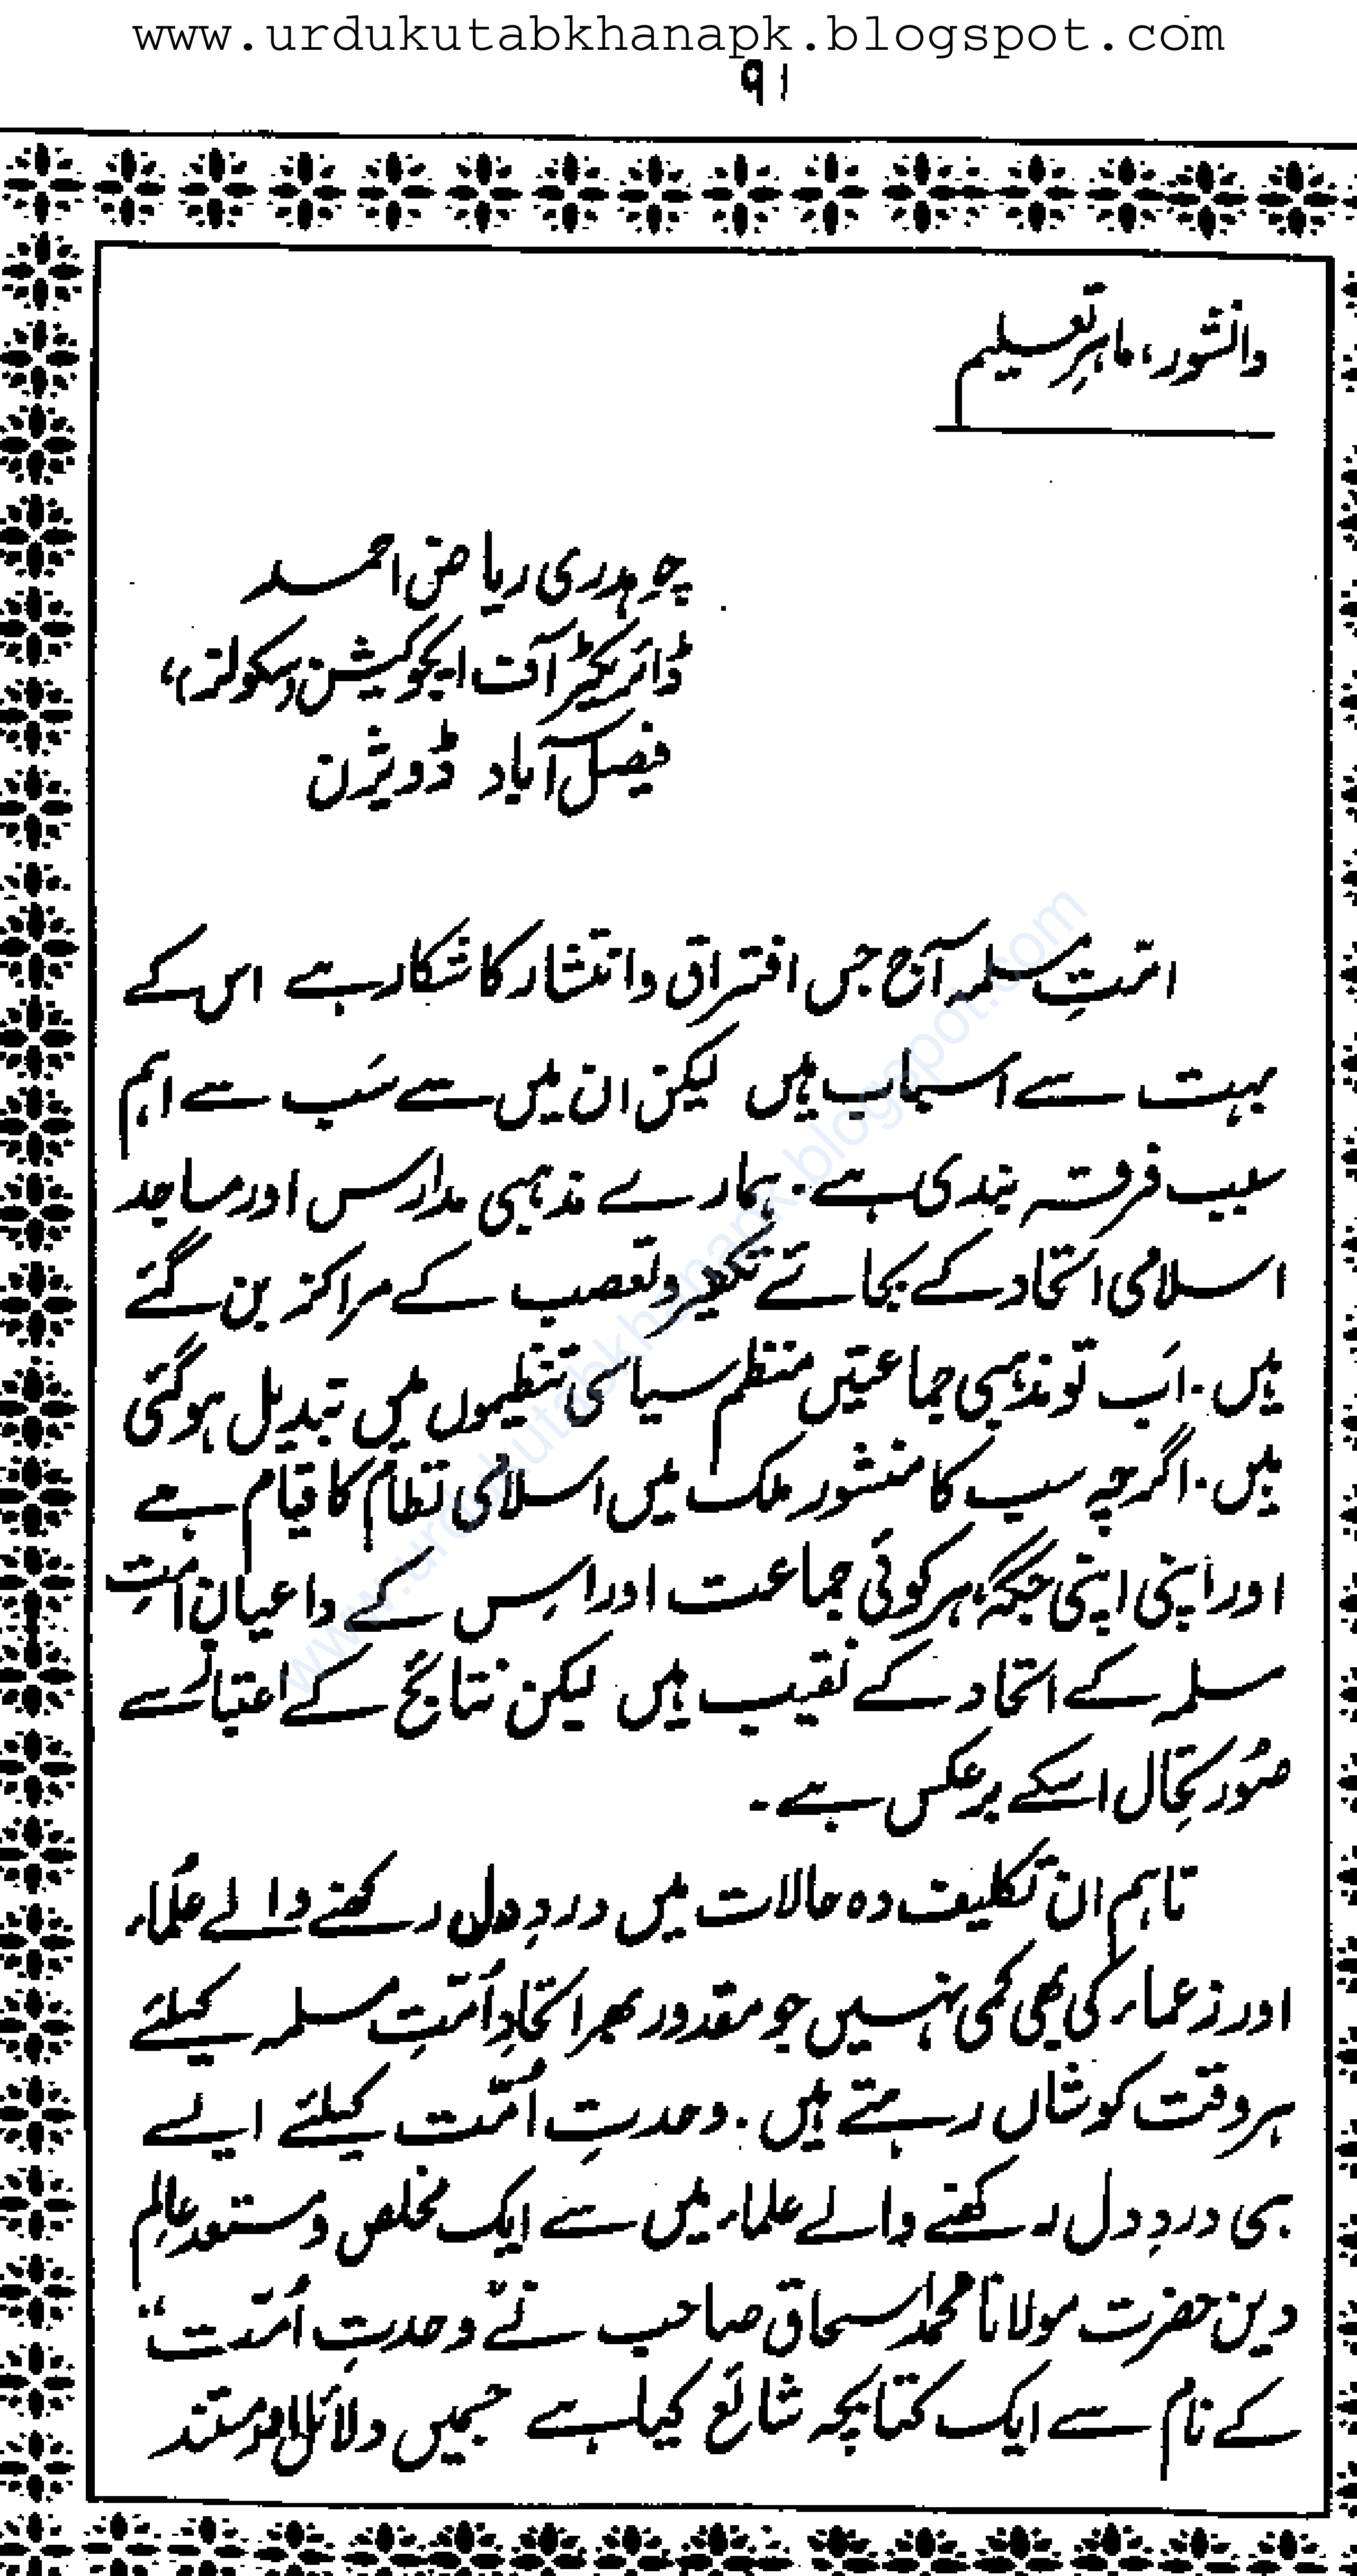 www.urdukutabkhanapk.blogspot.com
۹۱
دانشور، ماہرِ تعلیم
چوہدری ریاض احمد
ڈائریکٹر آف ایجوکیشن (سکولز)،
فیصل آباد ڈویژن
امتِ مسلمہ آج جس افتراق و انتشار کا شکار ہے اس کے
بہت سے اسباب ہیں لیکن ان میں سے سَب سے اہم
سبب فرقہ بندی ہے۔ ہمارے مذہبی مدارس اور مساجد
اسلامی اتحاد کے بجائے تکفیر و تعصب کے مراکز بن گئے
ہیں۔ اَب تو مذہبی جماعتیں منظم سیاسی تنظیموں میں تبدیل ہو گئی
ہیں۔ اگرچہ سب کا منشور ملک میں اسلامی نظام کا قیام ہے
اور اپنی اپنی جگہ، ہر کوئی جماعت اور اس کے داعیان امتِ
مسلمہ کے اتحاد کے نقیب ہیں لیکن نتائج کے اعتبار سے
صُورتحال اسکے برعکس ہے۔
تاہم ان تکلیف دہ حالات میں دردِ دل رکھنے والے عُلماء
اور زعماء کی بھی کمی نہیں جو مقدور بھر اتحادِ اُمّتِ مسلمہ کیلئے
ہر وقت کوشاں رہتے ہیں۔ وحدتِ اُمّت کیلئے ایسے
ہی دردِ دل رکھنے والے علماء میں سے ایک مخلص و مستعد عالِم
دین حضرت مولانا محمد اسحاق صاحب نے "وحدتِ اُمّت"
کے نام سے ایک کتابچہ شائع کیا ہے جسمیں دلائل اور مستند
www.urdukutabkhanapk.blogspot.com